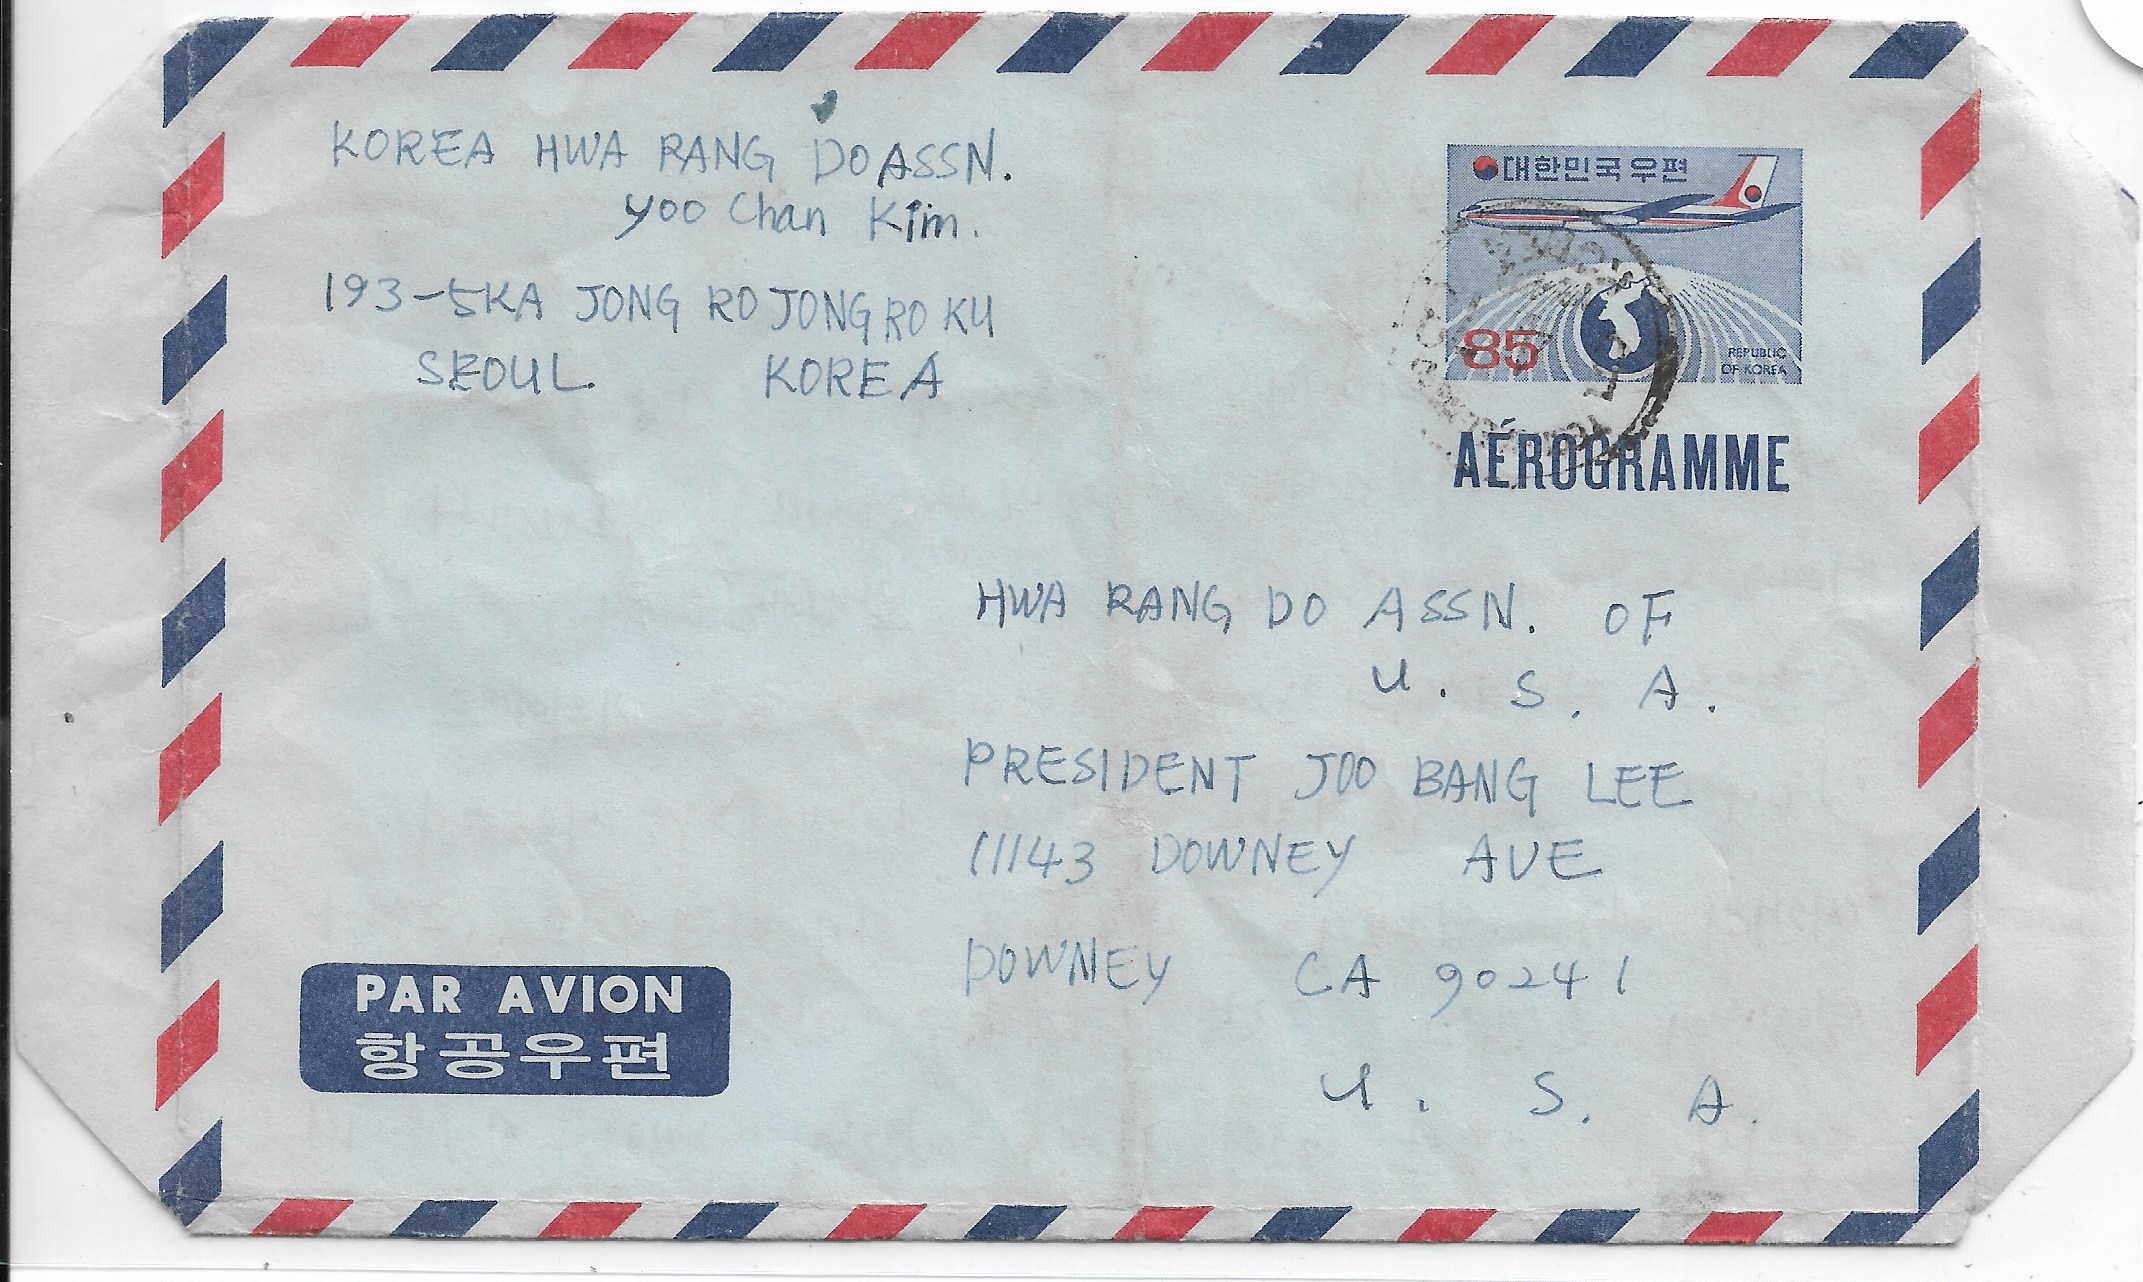 KOREA HWA RANG DO ASSN.
Yoo Chan Kim.
193-5KA JONG RO JONG RO KU
SEOUL KOREA
대한민국우편
85
REPUBLIC
OF KOREA
AÉROGRAMME
HWA RANG DO ASSN. OF
U. S. A.
PRESIDENT JOO BANG LEE
11143 DOWNEY AVE
DOWNEY CA 90241
U. S. A.
PAR AVION
항공우편